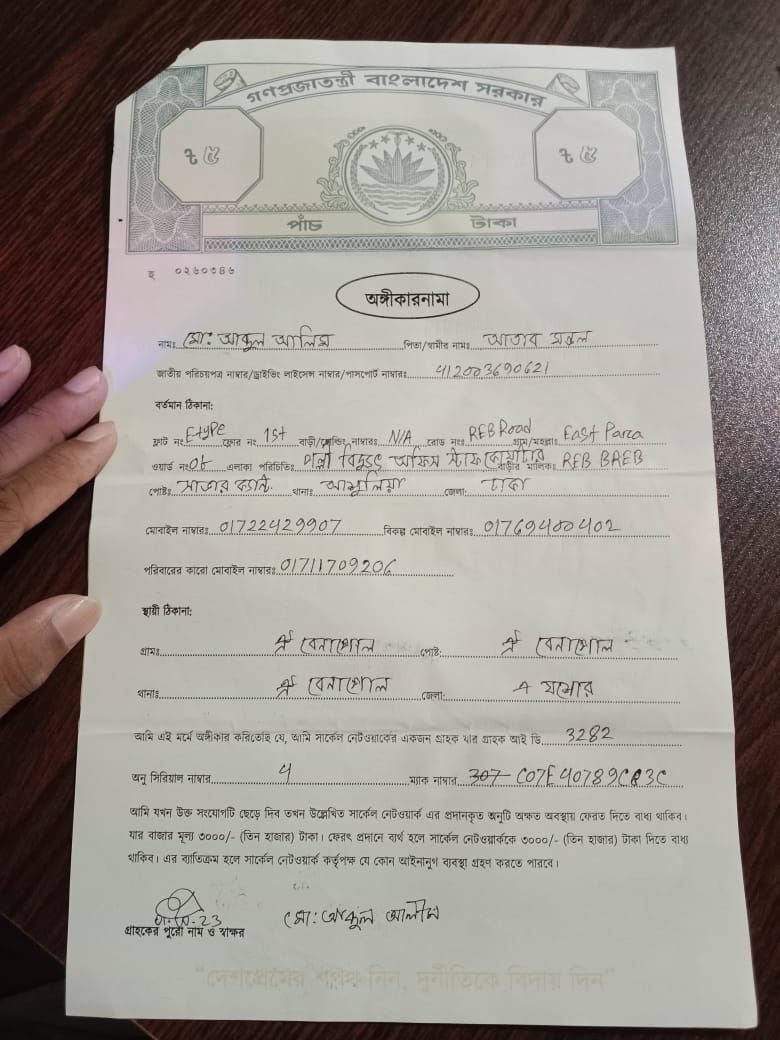 গণপ্রজাতন্ত্রী বাংলাদেশ সরকার
৳ ৫ ৳ ৫
পাঁচ টাকা
হ ০২৬০৩৪৬
অঙ্গীকারনামা
নামঃ মো: আকুল আলিম পিতা/স্বামীর নামঃ আতাব মন্ডল
জাতীয় পরিচয়পত্র নাম্বার/ড্রাইভিং লাইসেন্স নাম্বার/পাসপোর্ট নাম্বারঃ 412003690621
বর্তমান ঠিকানা:
ফ্লাট নং E-type ফ্লোর নং 1st বাড়ী/হোল্ডিং নাম্বারঃ N/A রোড নংঃ REB Road গ্রাম/মহল্লাঃ East Parca
ওয়ার্ড নংঃ 08 এলাকা পরিচিতিঃ পল্লী বিদ্যুৎ অফিস স্টাফ কোয়ার্টার বাড়ীর মালিকঃ REB BREB
পোষ্টঃ সাভার ক্যান্ট. থানাঃ আশুলিয়া জেলা: ঢাকা
মোবাইল নাম্বারঃ 01722429907 বিকল্প মোবাইল নাম্বারঃ 01769400402
পরিবারের কারো মোবাইল নাম্বারঃ 01711709206
স্থায়ী ঠিকানা:
গ্রামঃ ঐ বেনাপোল পোষ্ট: ঐ বেনাপোল
থানাঃ ঐ বেনাপোল জেলা: যশোর
আমি এই মর্মে অঙ্গীকার করিতেছি যে, আমি সার্কেল নেটওয়ার্কের একজন গ্রাহক যার গ্রাহক আই ডি 3282
অনু সিরিয়াল নাম্বার 4 ম্যাক নাম্বার C07E40789C83C
আমি যখন উক্ত সংযোগটি ছেড়ে দিব তখন উল্লেখিত সার্কেল নেটওয়ার্ক এর প্রদানকৃত অনুটি অক্ষত অবস্থায় ফেরত দিতে বাধ্য থাকিব।
যার বাজার মূল্য ৩০০০/- (তিন হাজার) টাকা। ফেরৎ প্রদানে ব্যর্থ হলে সার্কেল নেটওয়ার্ককে ৩০০০/- (তিন হাজার) টাকা দিতে বাধ্য
থাকিব। এর ব্যতিক্রম হলে সার্কেল নেটওয়ার্ক কর্তৃপক্ষ যে কোন আইনানুগ ব্যবস্থা গ্রহণ করতে পারবে।
মো: আকুল আলীম
গ্রাহকের পুরো নাম ও স্বাক্ষর
"দেশপ্রেমের শপথ নিন, দুর্নীতিকে বিদায় দিন"